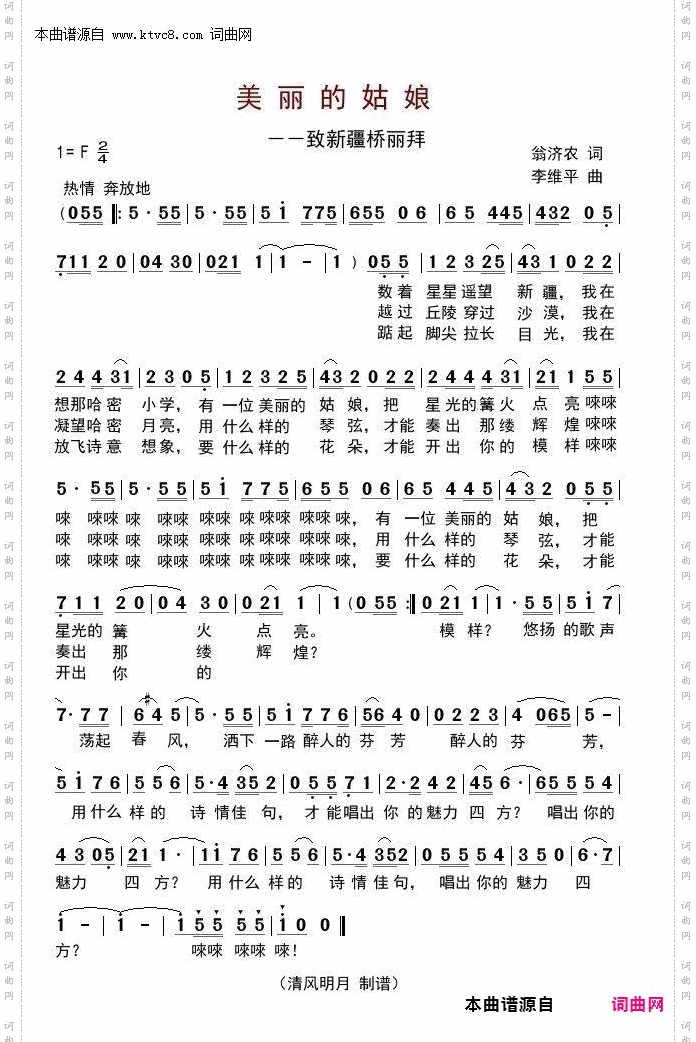 本曲谱源自 www.ktvc8.com 词曲网
美丽的姑娘
——致新疆桥丽拜
1= F 2/4
翁济农 词
李维平 曲
热情 奔放地
(055 ‖: 5·55|5·55|5i 775|655 06|65 445|432 05|
711 20|0430|021 1|1 - |1 ) 055|123 25|431 022|
数着 星星遥望 新疆，我在
越过 丘陵穿过 沙漠，我在
踮起 脚尖拉长 目光，我在
24 431|230 5|12325|432 022|24431|21 1 55|
想那哈密 小学，有一位美丽的 姑娘，把 星光的篝火 点亮 唻唻
凝望哈密 月亮，用什么样的 琴弦，才能 奏出那缕 辉煌 唻唻
放飞诗意 想象，要什么样的 花朵，才能 开出你的 模样 唻唻
5·55|5·55|5i 775|655 06|65 445|432 055|
唻 唻唻唻 唻唻 唻唻唻 唻唻唻 唻唻唻，有 一位美丽的 姑 娘，把
唻 唻唻唻 唻唻 唻唻唻 唻唻唻 唻唻唻，用 什么样的 琴 弦，才能
唻 唻唻唻 唻唻 唻唻唻 唻唻唻 唻唻唻，要 什么样的 花 朵，才能
711 20|04 30|021 1|1 (055:‖021 1|1· 5|5i 7|
星光的篝 火 点 亮。 模样？ 悠扬的歌声
奏出 那 缕 辉 煌？
开出 你 的
7·77|6#4 5|5·55|5i 776|5640|0223|4 065|5 -|
荡起 春 风，洒下 一路 醉人的 芬 芳 醉人的 芬 芳，
5i76|55 6|5·4352|0557|242|45 6·|6555 54|
用什么样的 诗情佳 句，才能唱出你的魅力 四方？唱出你的
4305|21 1·|1i76|556|5·4352|055554|3505|6·7|
魅力 四方？用什么样的 诗情佳句，唱出你的 魅力 四
i - |i - |i55 55|i00‖
方？ 唻唻 唻唻 唻！
（清风明月 制谱）
本曲谱源自 词曲网